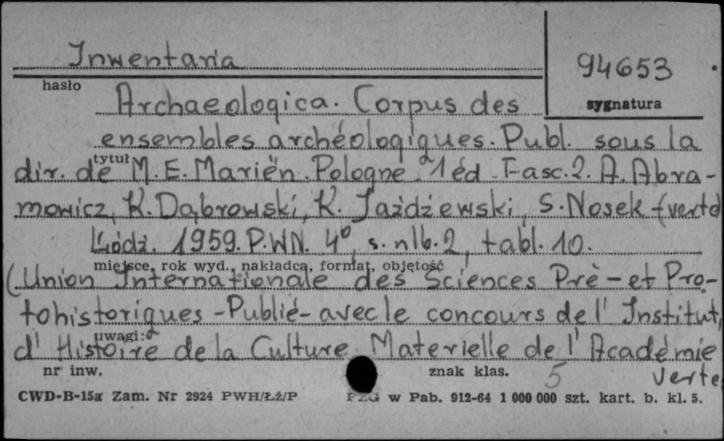 Inwentaria
94653
hasło
sygnatura
Archaeologica. Corpus des
ensembles archéologiques. Publ. sous la
tytuł
dir. de M. E. Mariën. Pologne. 1 éd. Fasc. 2. A. Abra-
mowicz, K. Dąbrowski, K. Jażdżewski, S. Nosek (verte)
Łódź. 1959. P.WN. 4°, s. nlb. 2, tabl. 10.
miejsce, rok wyd., nakładca, format, objętość
(Union Internationale des Sciences Prè- et Pro-
tohistoriques - Publié - avec le concours de l' Institut
uwagi:
d' Histoire de la Culture Materielle de l' Académie
nr inw.
znak klas.
5 verte
CWD-B-15a Zam. Nr 2924 PWH/Łż/P
PZG w Pab. 912-64 1 000 000 szt. kart. b. kl. 5.